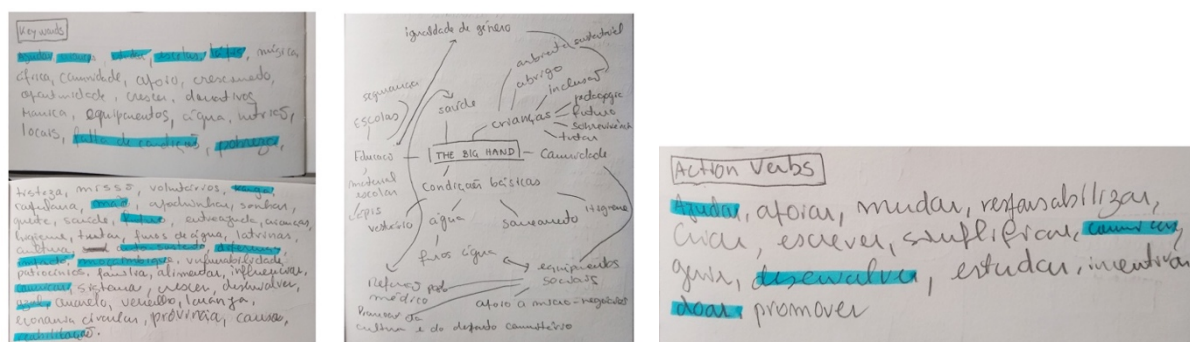 Key words
crianças, escolas, lápis, missão
áfrica, comunidade, apoio, crescimento,
oportunidade, crescer, donativos
manica, equipamentos, água, nutrição,
locais, falta de condições, pobreza,
tristeza, missão, voluntários,
mão, apadrinhar, sonhar,
saúde, futuro, entreajuda, crianças,
higiene, furos de água, latrinas,
cultura, auto sustento, diferença,
moçambique, vulnerabilidade,
patrocínios, família, alimentar, influenciar,
comunicar, sistema, crescer, desenvolver,
azul, amarelo, vermelho, laranja,
economia circular, província, causas,
reabilitação.
igualdade de género
ambiente sustentável
abrigo
inclusão
segurança
pedagogia
futuro
sobrevivência
tutor
saúde
crianças
escolas
Educação
THE BIG HAND
Comunidade
material escolar
lápis
vestuário
condições básicas
água
saneamento
higiene
furos água
equipamentos sociais
Reforço
médico
apoio a micro-negócios
Promoção da
cultura e do desporto comunitário
Action Verbs
Ajudar, apoiar, mudar, responsabilizar,
Criar, escrever, simplificar, comunicar,
gerir, desenvolver, estudar, incentivar
doar, promover